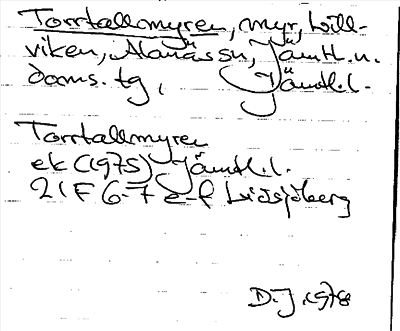 Torrtallmyren, myr, Lill-
viken, Alanäs sn, Jämtl. n.
doms. tg, Jämtl. l.
Torrtallmyren
ek (1975) Jämtl. l.
21F 6-7 e-f Lidsjöberg
D. J. 1978